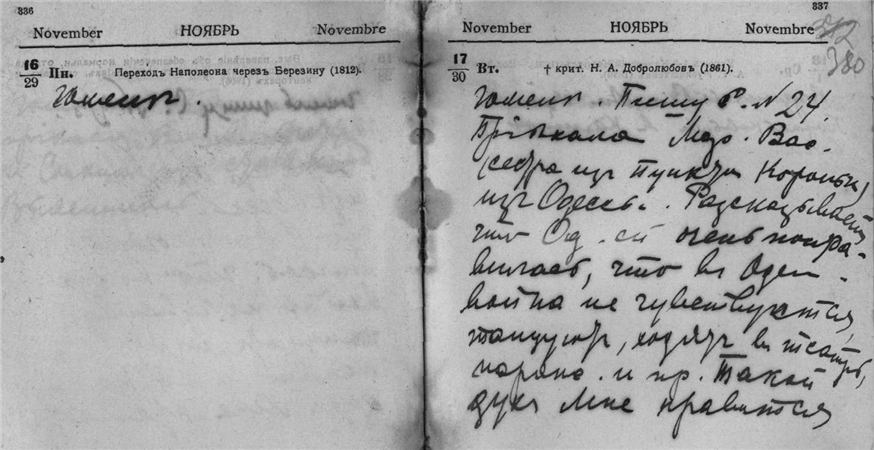 336
November НОЯБРЬ Novembre
16/29 Пн. Переходъ Наполеона черезъ Березину (1812).
Гомель.
337
November НОЯБРЬ Novembre
380
17/30 Вт. † крит. Н. А. Добролюбовъ (1861).
Гомель. Пишу №24
Прiѣхала Мар. Вас.
(сестра изъ пункта
изъ Одессы. Разсказываетъ
что Од. ей очень понра-
вилась, что въ Одес.
война не чувствуется,
танцуютъ, ходятъ въ театръ,
и пр. Такой
духъ мнѣ нравится